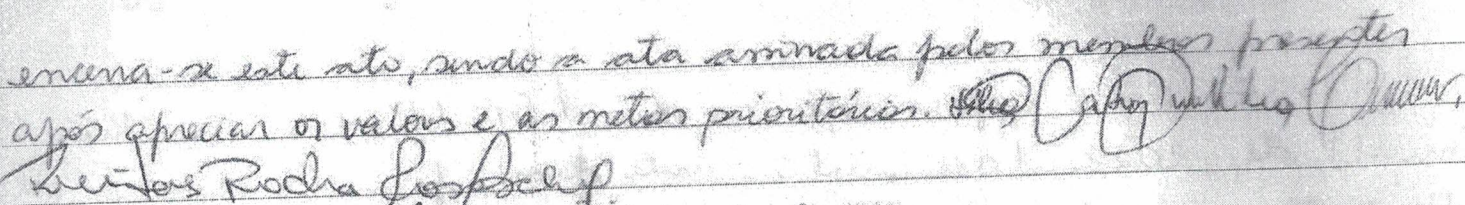 encerra-se este ato, sendo a ata assinada pelos membros presentes
após apreciar os valores e as metas prioritárias.
Rocha